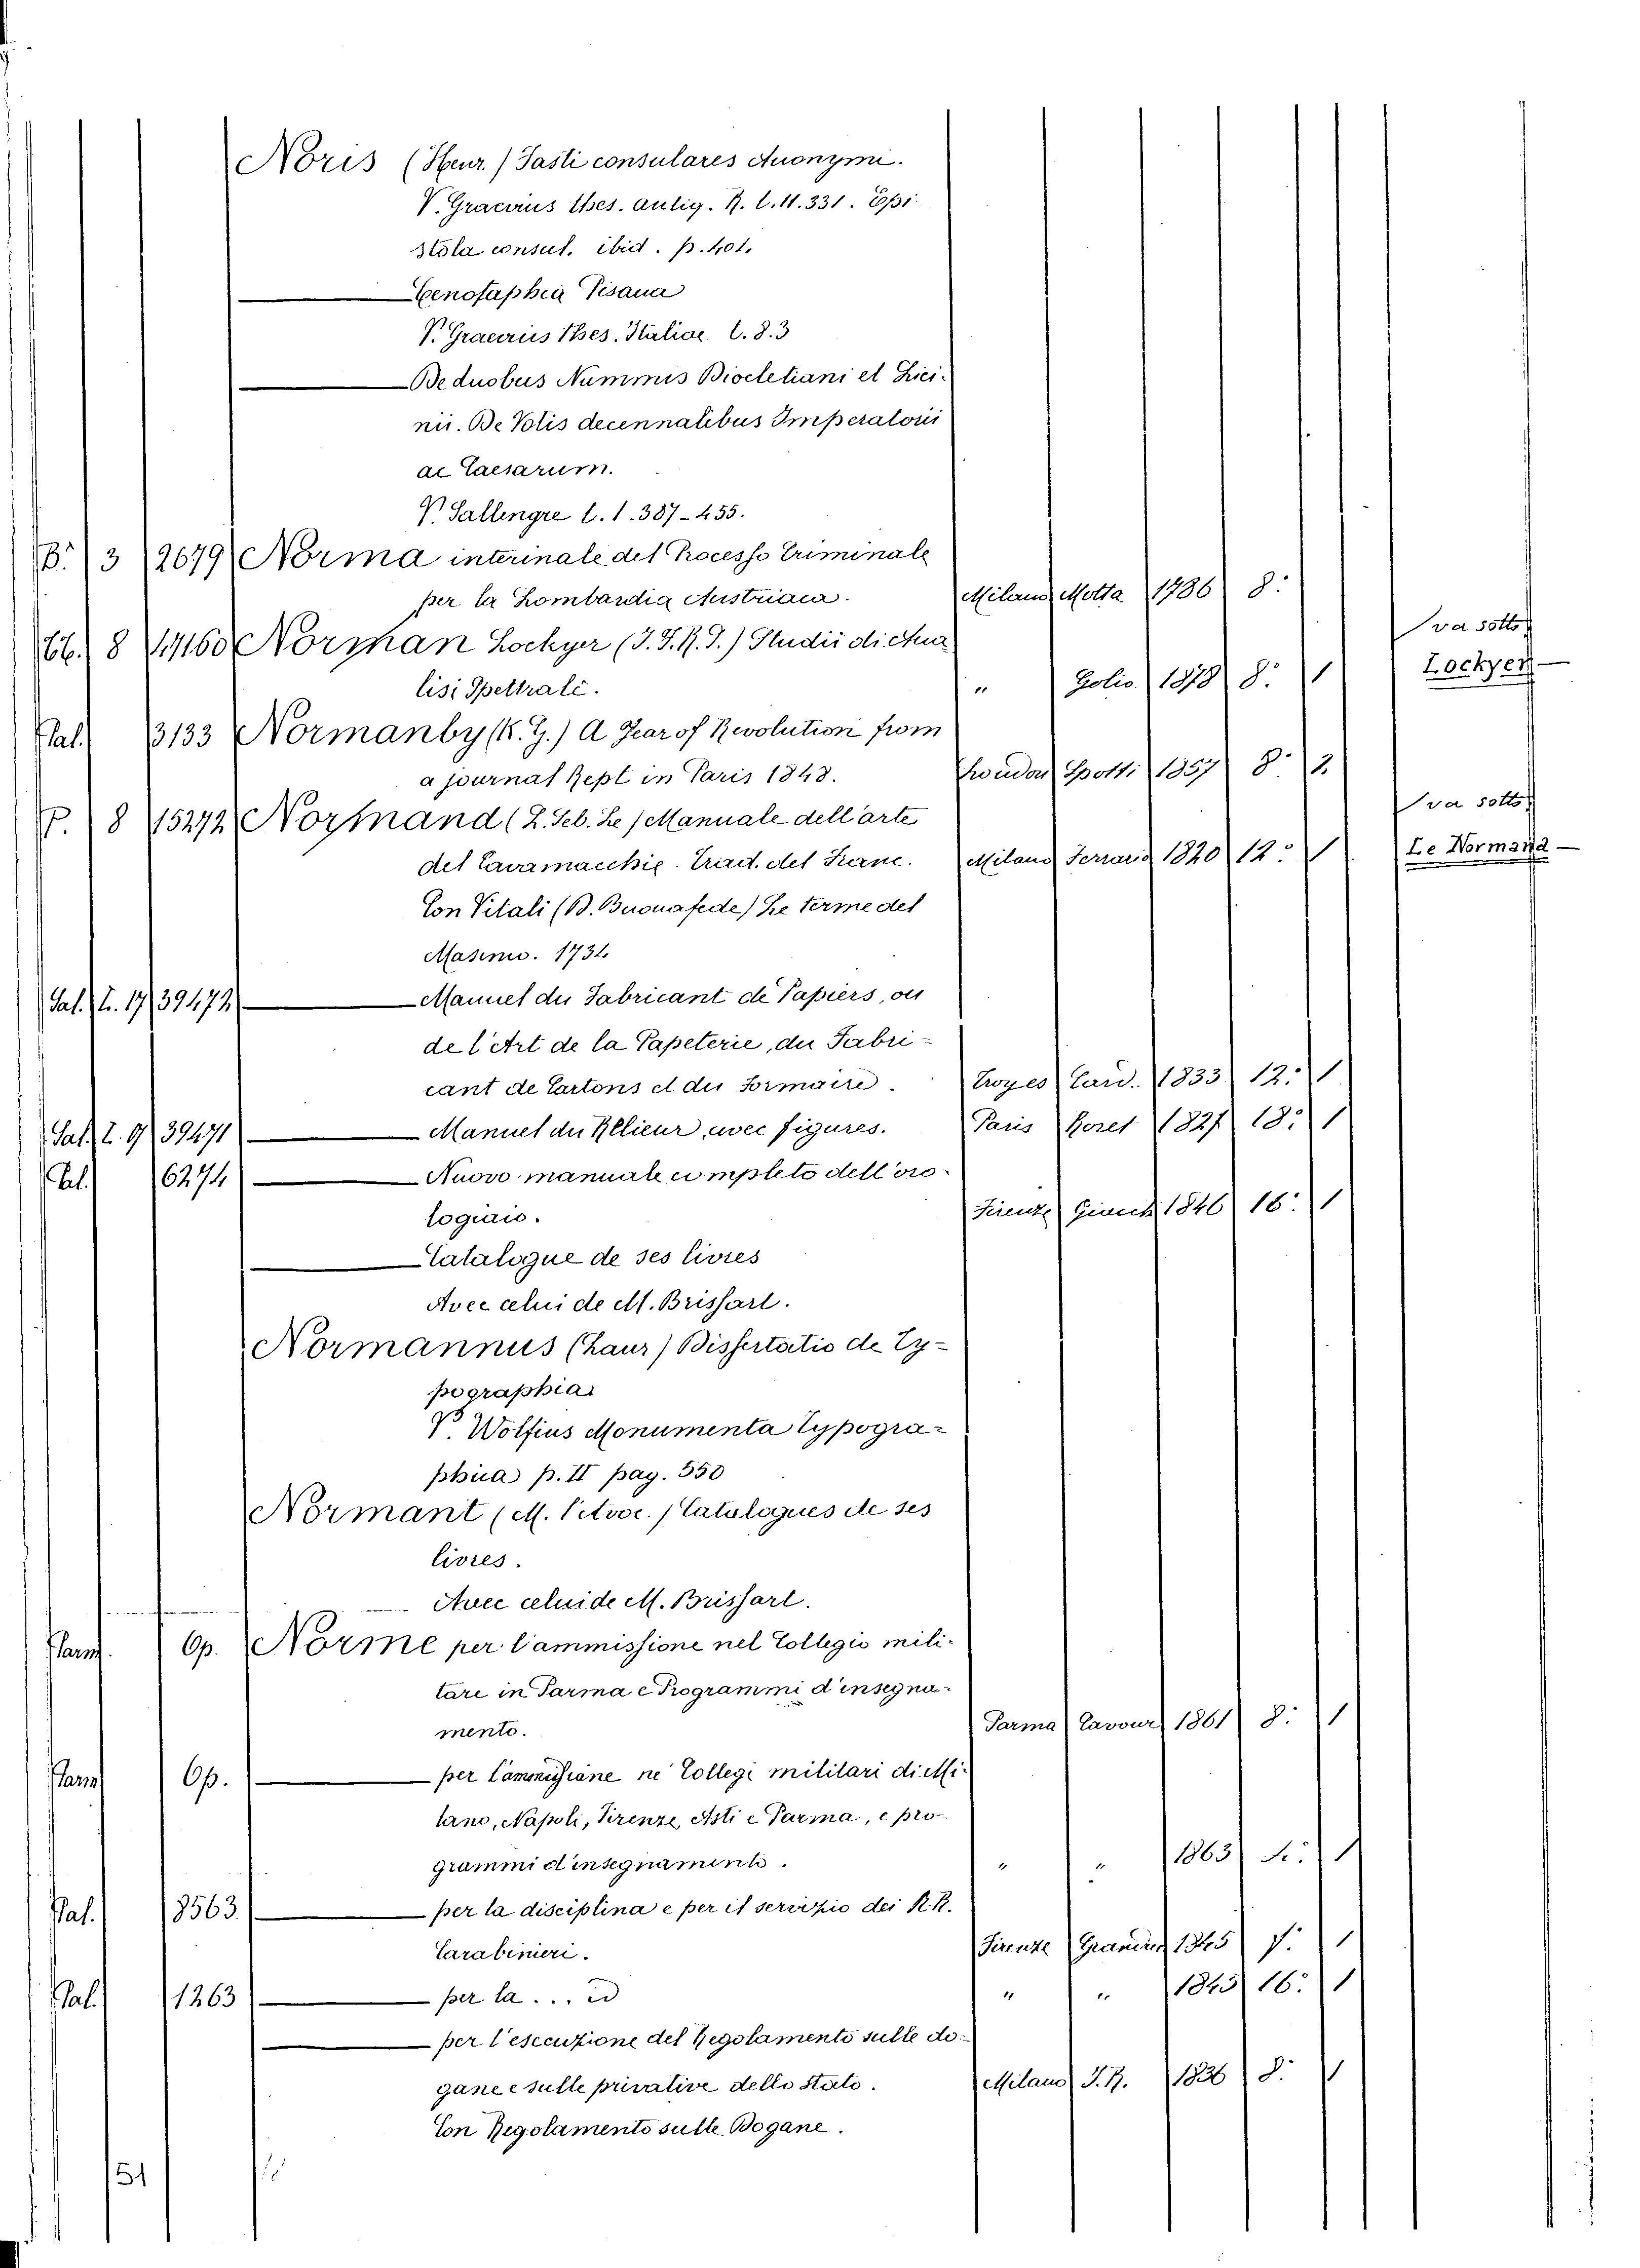 Noris (Henr.) Fasti consulares Anonymi.
V. Graevius thes. antiq. R. t. 11. 331. Epi-
stola consul. ibid. p. 401.
Cenotaphia Pisana
V. Graevius thes. Italiae t. 8. 3
De duobus Nummis Diocletiani et Lici-
nii. De Votis decennalibus Imperatorii
ac Caesarum.
V. Sallengre t. 1. 387-455.
B. 3 2679 Norma interinale del Processo Criminale
per la Lombardia Austriaca. Milano Motta 1786 8:
8 17160 Norman Lockyer (J. F. R. S.) Studii di Ana
lisi Spettrale. " Golio. 1878 8: 1
va sotto
Lockyer
Pal. 3133 Normanby (K. G.) A Year of Revolution from
a journal Kept in Paris 1848. London Spotti. 1857 8: 2
8 15272 Normand (L. Seb. Le) Manuale dell'arte
del Cavamacchie. Trad. del Franc. Milano Ferrario 1820 12: 1
va sotto
Le Normand
Con Vitali (B. Buonafede) Le terme del
Masino. 1734
Sal. L. 17 39472 Manuel du Fabricant de Papiers, ou
de l'Art de la Papeterie, du Fabri-
cant de Cartons et du Formaire. Troyes Card. 1833 12: 1
Sal. L. 9 39471 Manuel du Relieur, avec figures. Paris Roret 1827 18: 1
Pal. 6274 Nuovo manuale completo dell'oro-
logiaio. Firenze 1846 16: 1
Catalogue de ses livres
Avec celui de M. Brissart.
Normannus (Laur) Dissertatio de Ty-
pographia
V. Wolfius Monumenta Typogra-
phica p. II pag. 550
Normant (M. ) Catalogues de ses
livres.
Avec celui de M. Brissart.
Parm. Op. Norme per l'ammissione nel Collegio mili-
tare in Parma e Programmi d'insegna-
mento. Parma Cavour 1861 8: 1
Parm Op. per l'ammissione ne' Collegi militari di Mi-
lano, Napoli, Firenze, Asti e Parma, e pro-
grammi d'insegnamento. " " 1863 1
Pal. 8563 per la disciplina e per il servizio dei R.R.
Carabinieri. Firenze 1845 1
Pal. 1263 per la ... id " " 1845 16: 1
per l'esecuzione del Regolamento sulle do-
gane e sulle privative dello Stato. Milano I. R. 1836 8: 1
Con Regolamento sulle Dogane.
51